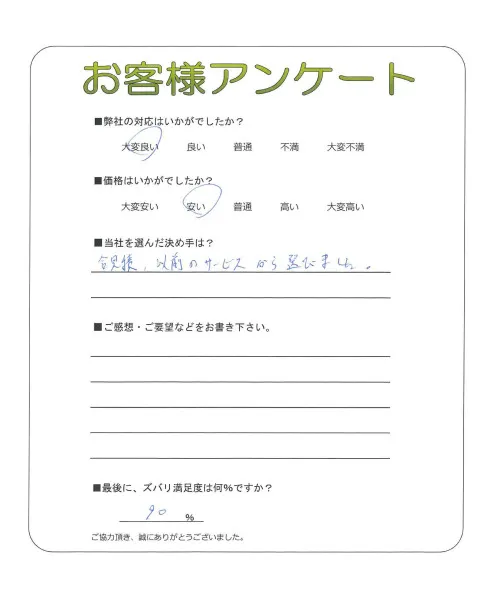 お客様アンケート
■弊社の対応はいかがでしたか?
大変良い 良い 普通 不満 大変不満
■価格はいかがでしたか?
大変安い 安い 普通 高い 大変高い
■当社を選んだ決め手は?
様、以前のサービスから選びました。
■ご感想・ご要望などをお書き下さい。
■最後に、ズバリ満足度は何%ですか?
90 %
ご協力頂き、誠にありがとうございました。